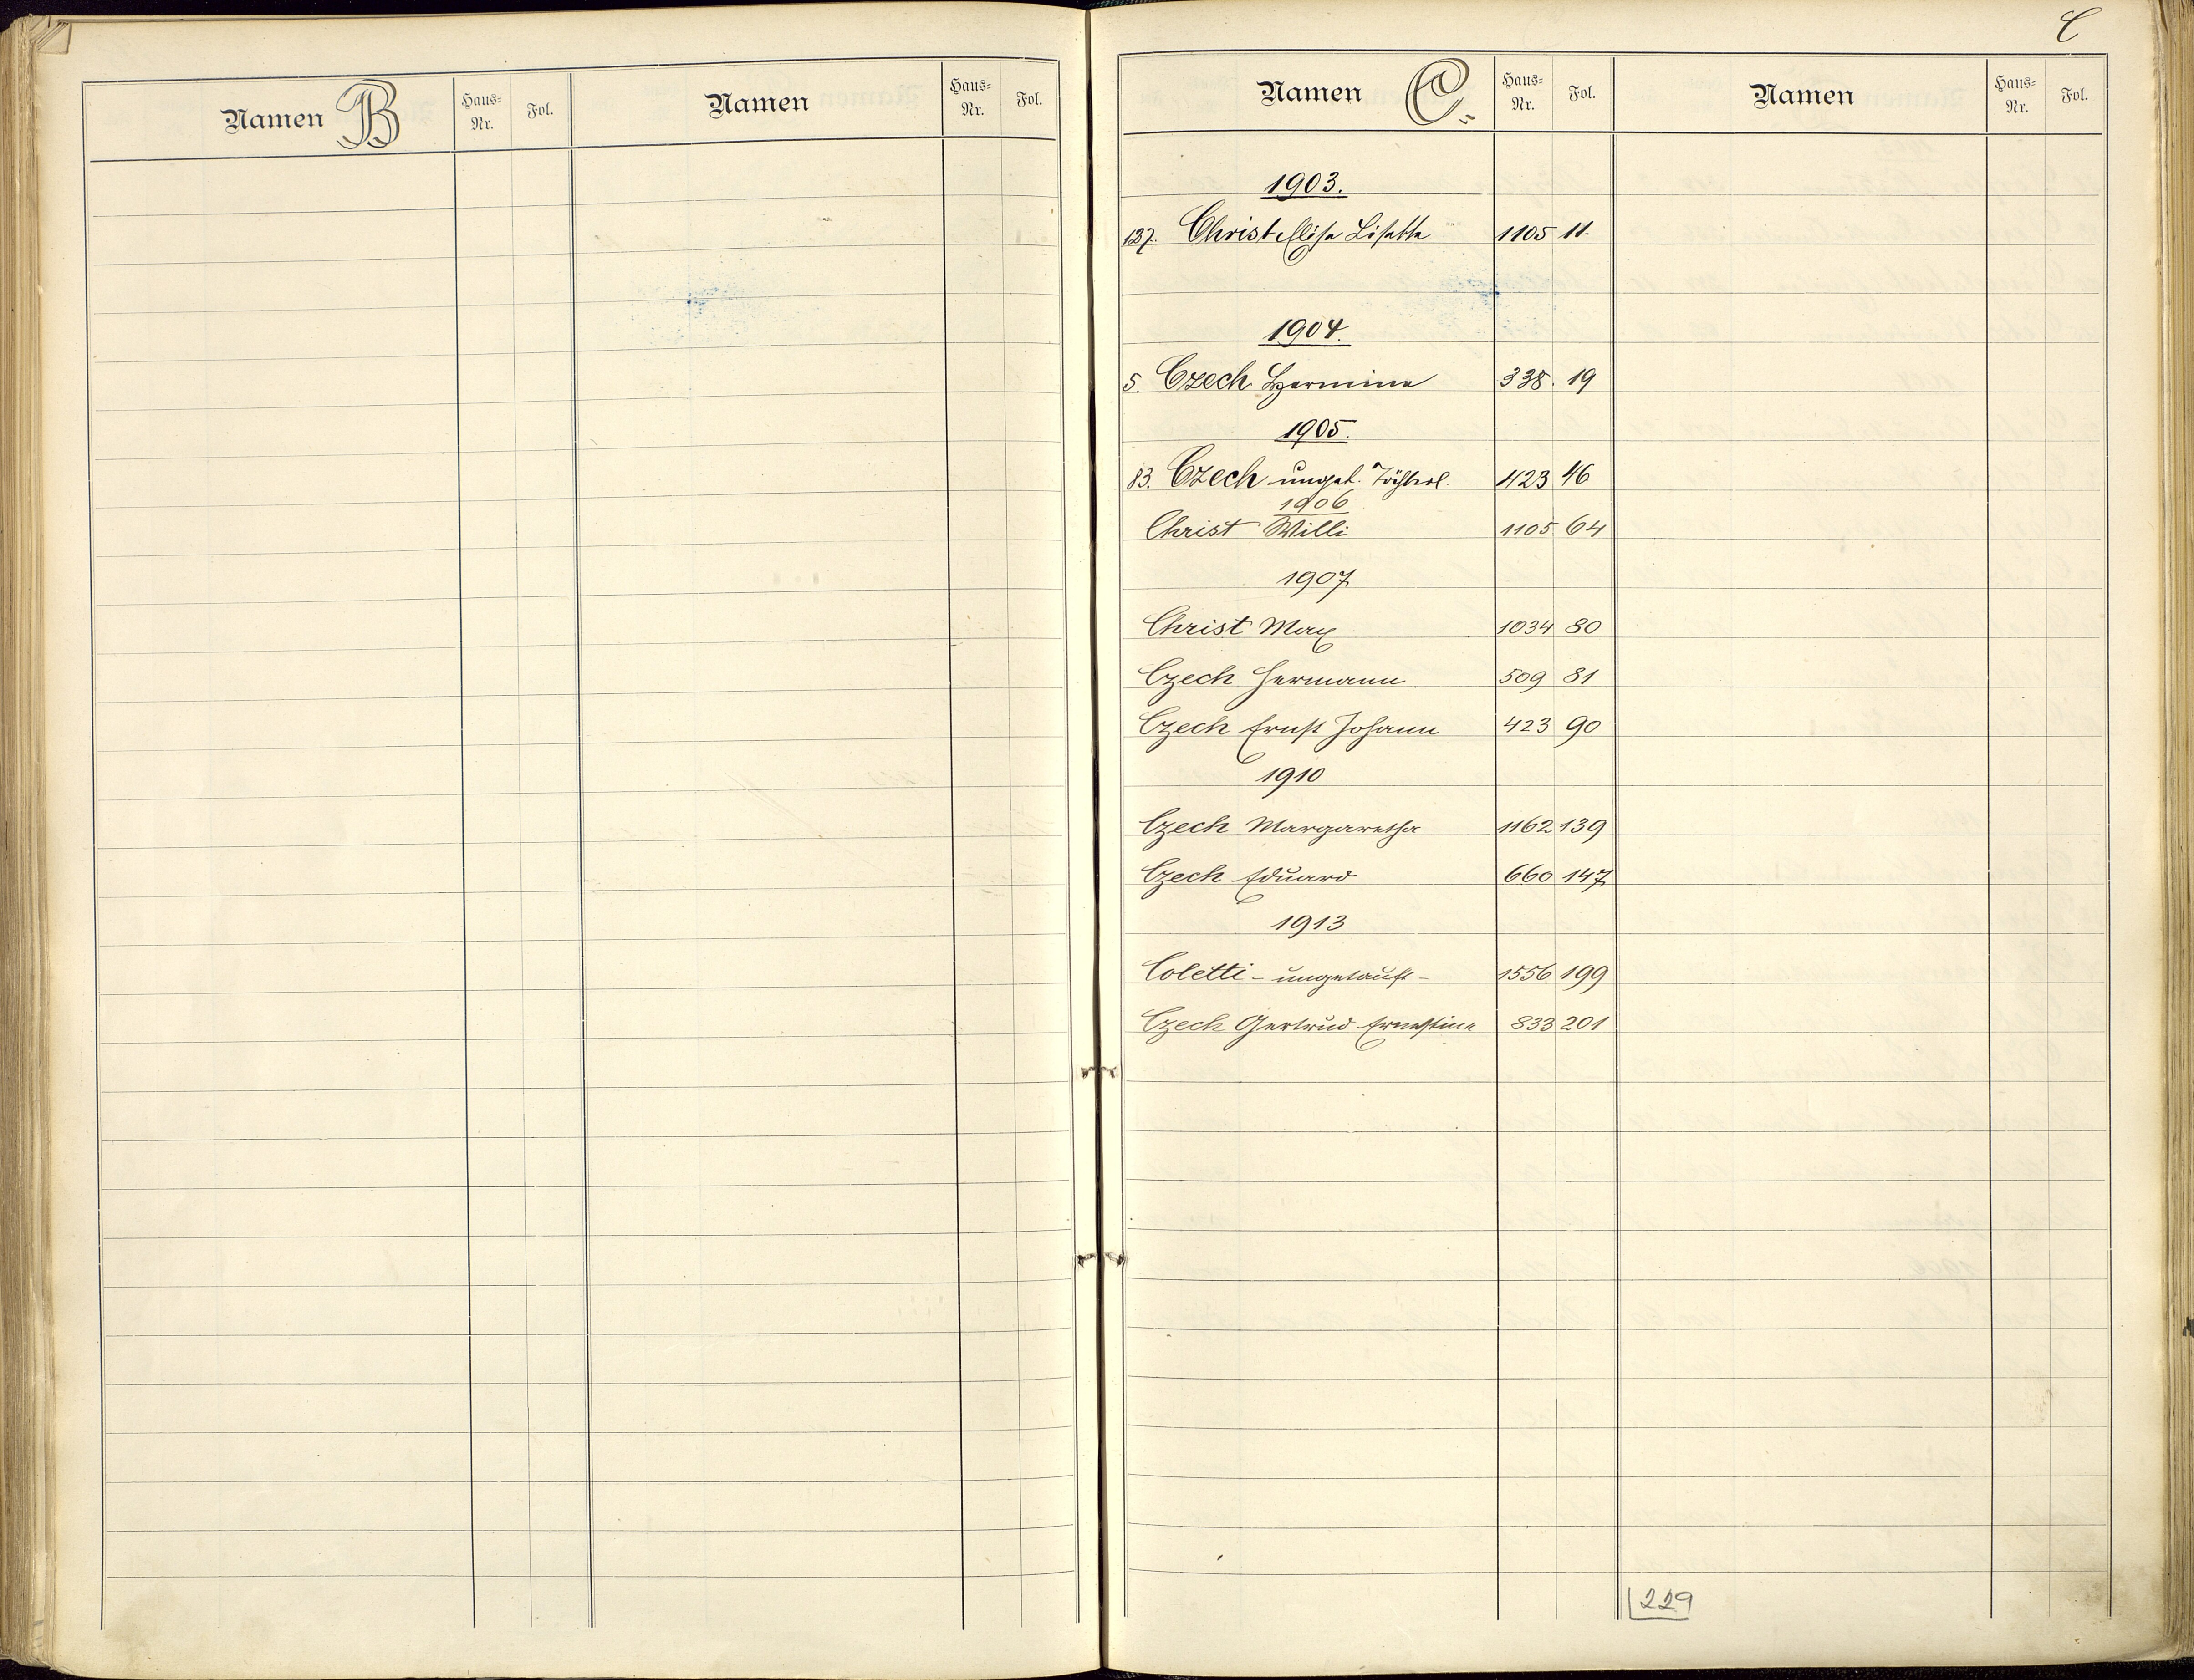 C
Namen B Haus-Nr. Fol. Namen Haus-Nr. Fol.
Namen C. Haus-Nr. Fol. Namen Haus-Nr. Fol.
1903.
137. Christ Elise Lisette 1105 11.
1904.
5. Czech Hermine 338. 19
1905.
83. Czech unget. Töchterl. 423 46
1906
Christ Willi 1105 64
1907
Christ Max 1034 80
Czech Hermann 509 81
Czech Ernst Johann 423 90
1910
Czech Margaretha 1162 139
Czech Eduard 660 147
1913
Coletti - ungetauft - 1556 199
Czech Gertrud Ernestine 833 201
229